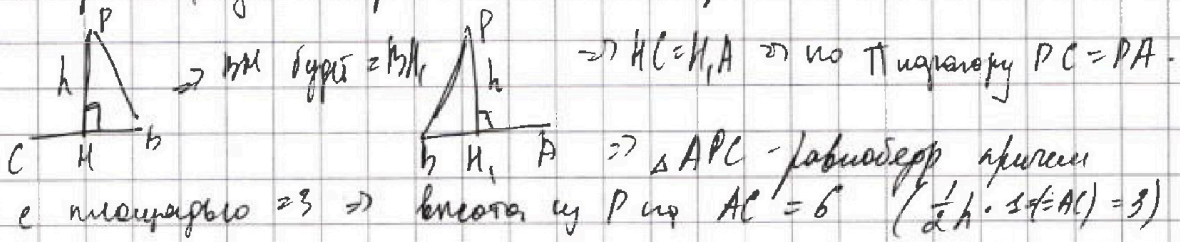 P P
h ⇒ BH будет = BH₁ h ⇒ HC = H₁A ⇒ по Пифагору PC = PA.
C H B B H₁ A ⇒ △APC - равнобедр причем
с площадью = 3 ⇒ высота из P на AC = 6 (½h · 1(=AC) = 3)